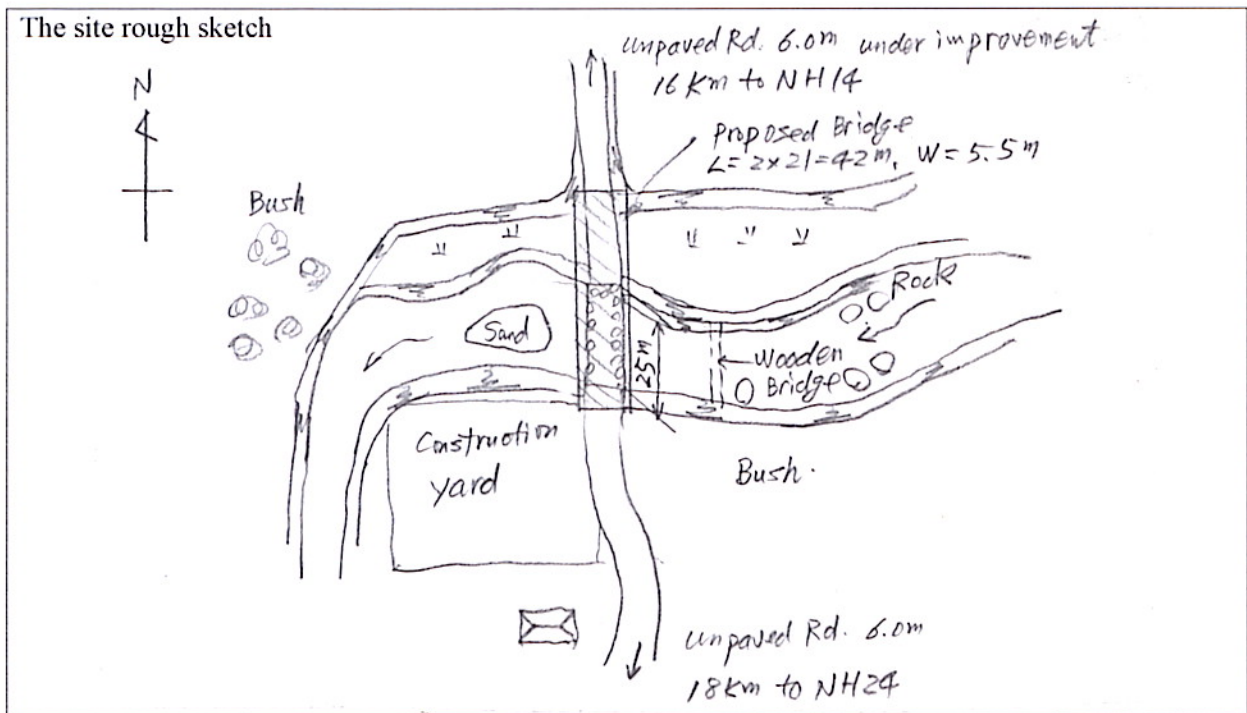 The site rough sketch
Unpaved Rd. 6.0m under improvement
16 Km to NH14
N
Proposed Bridge
L=2×21=42m, W=5.5m
Bush
Rock
Sand
25m
Wooden
Bridge
Construction
yard
Bush.
Unpaved Rd. 6.0m
18Km to NH24